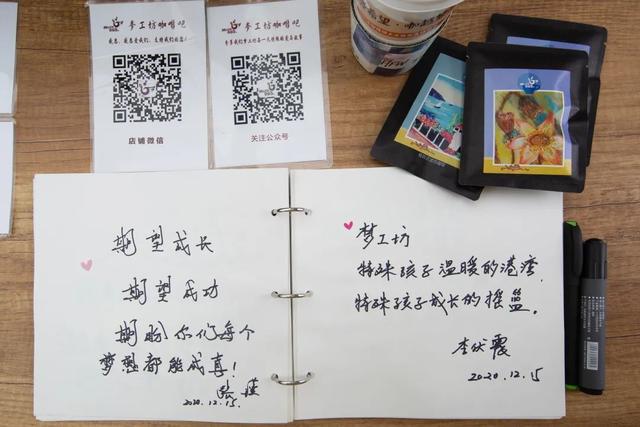 梦工坊咖啡吧
店铺微信
梦工坊咖啡吧
关注公众号
期望成长
期望成功
期盼你们每个
梦想都能成真！
2020.12.15.
梦工坊
特殊孩子温暖的港湾，
特殊孩子成长的摇篮。
李伏震
2020.12.15